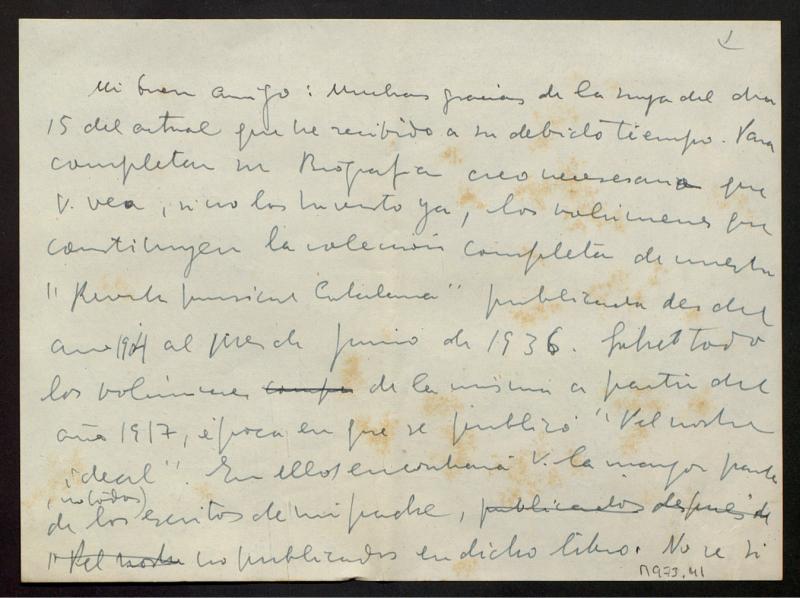 Mi buen amigo: Muchas gracias de la suya del dia
15 del actual que he recibido a su debido tiempo. Para
completar su Biografia creo necesario que
V. vea, si no los ha visto ya, los volúmenes que
constituyen la colección completa de nuestra
"Revista musical Catalana" publicada desde el
año 1904 al mes de Junio de 1936. Sobretodo
los volúmenes compu de la misma a partir del
año 1917, época en que se publicó "Pel nostre
ideal". En ellos encontrará V. la mayor parte
(no todos)
de los escritos de mi padre, publicados después de
"Pel nostre no publicados en dicho libro. No se si
M973,41